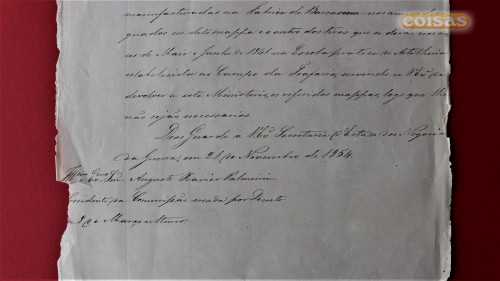 coisas
manufacturadas na Fabrica de Barcarena
quados no dito mappa e o outro dos tiros que se derão nos me
zes de Maio e Junho de 1841 na Escola pratica de Artilheria
estabelecida no Campo da Trafaria, servindo-se
devolver a este Ministerio, os referidos mappas, logo que lhe
não sejão necessarios.
Deos Guarde a Secretaria d'Estado dos Negocios
da Guerra, em 21 de Novembro de 1854
Augusto Xavier Palmeirim
Presidente da Commissão creada por Decreto
de Março ultimo